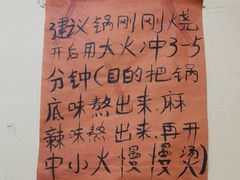 建议锅刚刚烧
开后用大火冲3-5
分钟(目的把锅
底味熬出来.麻
辣味熬出来.再开
中小火慢慢烫)